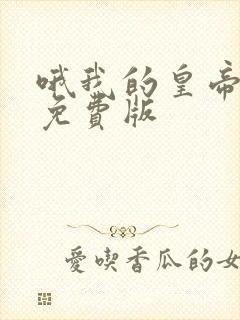 哦我的皇帝
免費版
愛喫香瓜的女